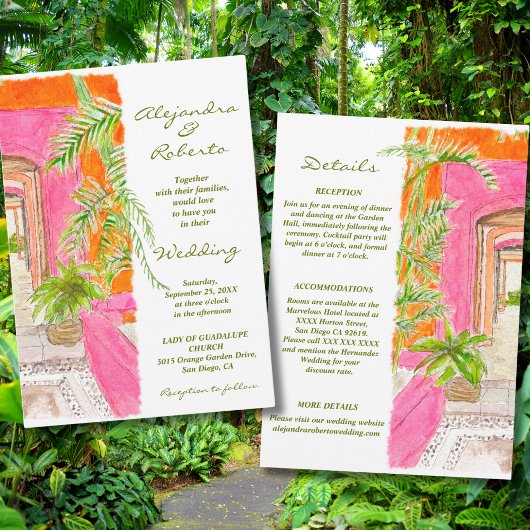 Alejandra
&
Roberto
Together
with their families,
would love
to have you
in their
Wedding
Saturday,
September 25, 20XX
at three o'clock
in the afternoon
LADY OF GUADALUPE
CHURCH
3015 Orange Garden Drive,
San Diego, CA
Reception to follow
Details
RECEPTION
Join us for an evening of dinner
and dancing at the Garden
Hall, immediately following the
ceremony. Cocktail party will
begin at 6 o'clock, and formal
dinner at 7 o'clock.
ACCOMMODATIONS
Rooms are available at the
Marvelous Hotel located at
XXXX Horton Street,
San Diego CA 92619.
Please call XXX XXX XXXX
and mention the Hernandez
Wedding for your
discount rate.
MORE DETAILS
Please visit our wedding website
alejandraroberto​wedding.com